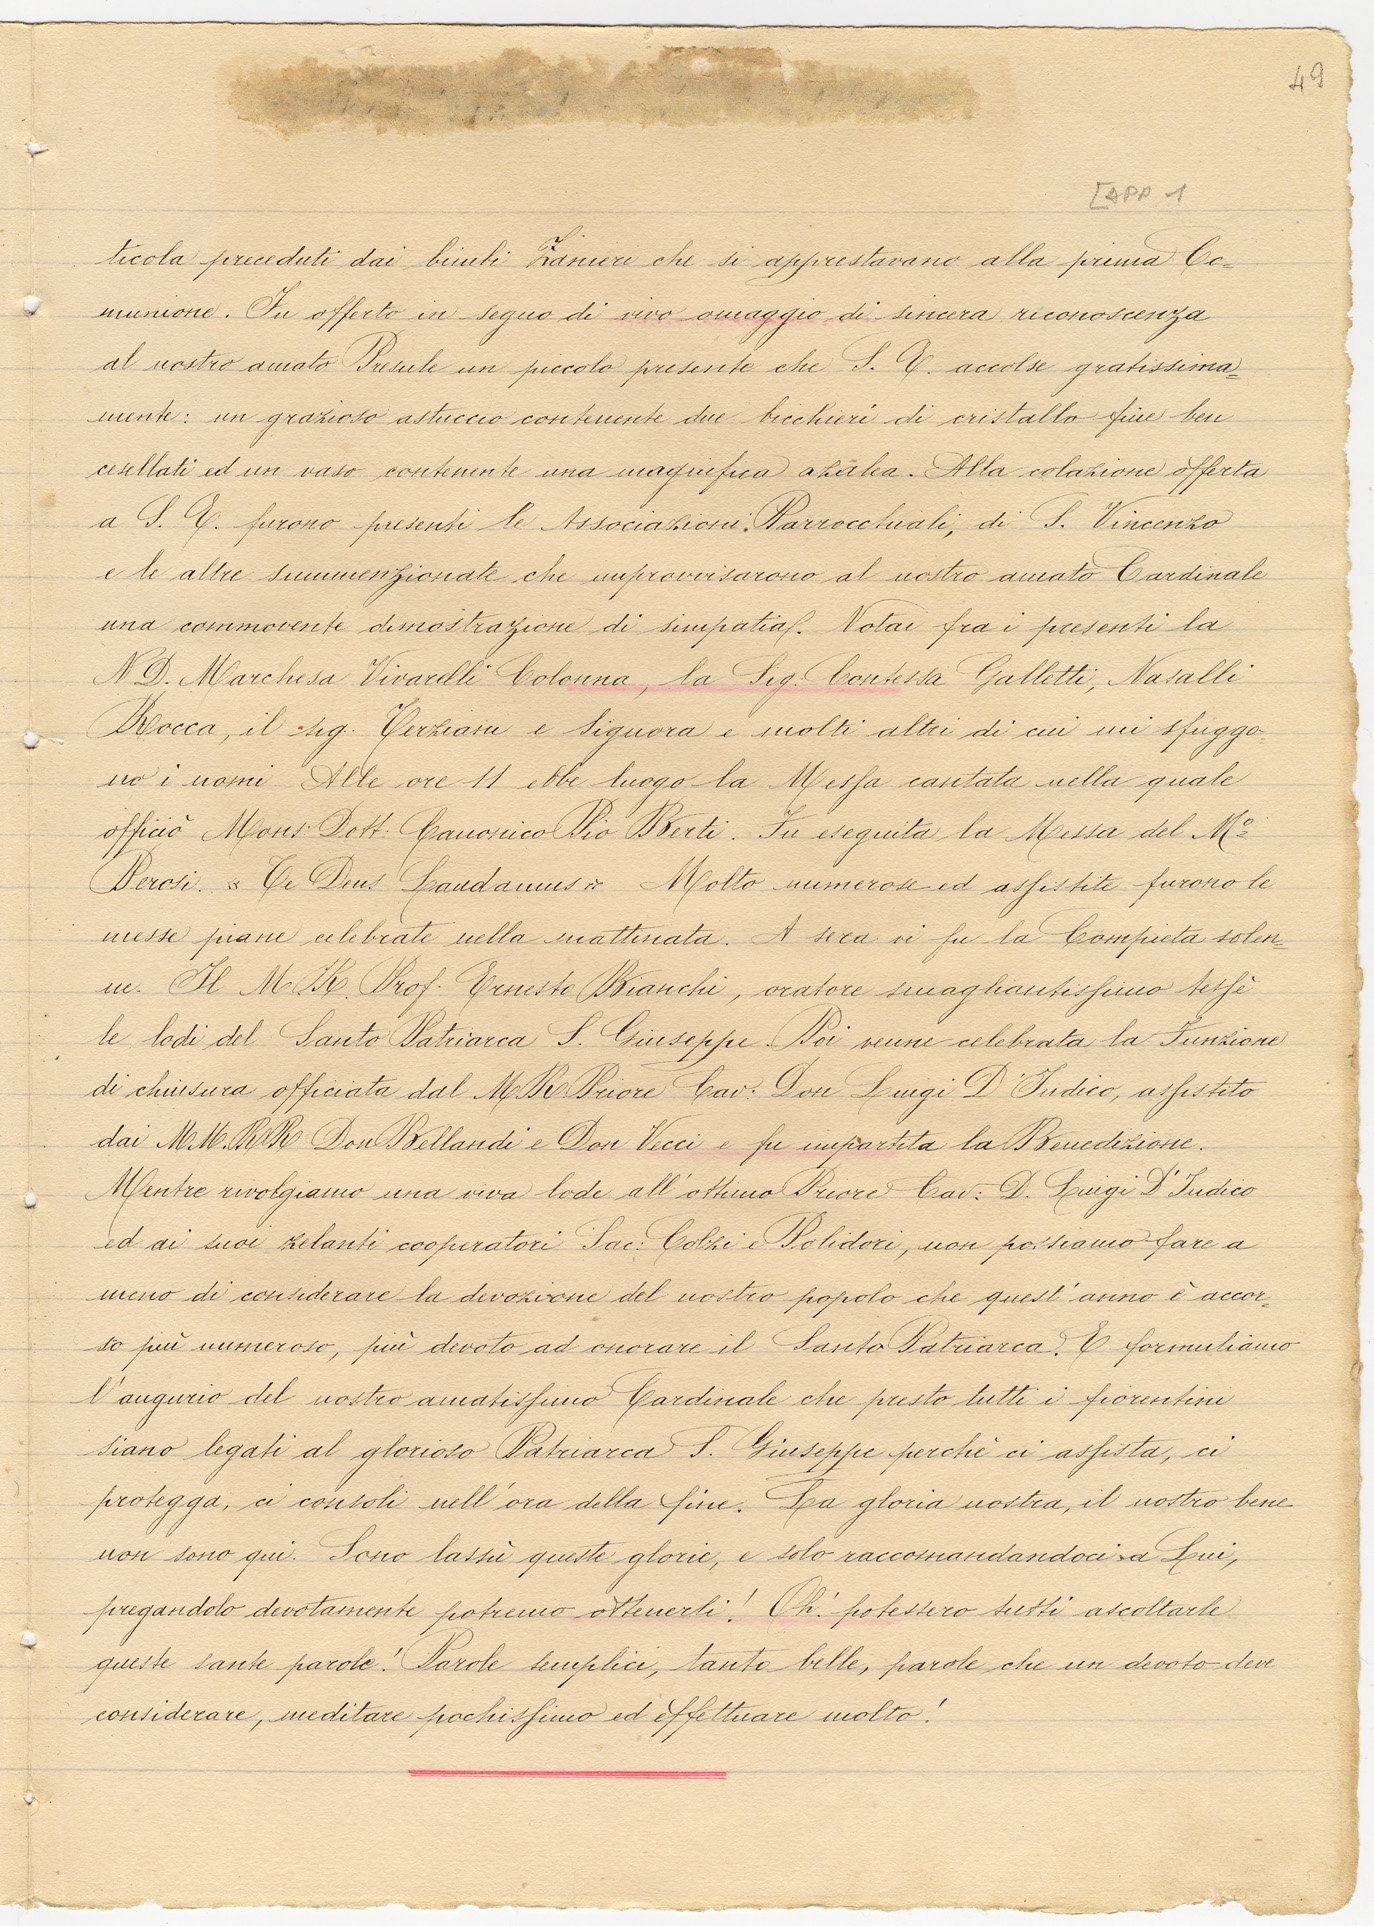 49
[APP 1
ticola preceduti dai bimbi Zanieri che si apprestavano alla prima Co=
munione. Fu offerto in segno di vivo omaggio di sincera riconoscenza
al nostro amato Presule un piccolo presente che S. E. accolse gratissima=
mente: un grazioso astuccio contenente due bicchieri di cristallo fine ben
cesellati ed un vaso contenente una magnifica azalea. Alla colazione offerta
a S. E. furono presenti le Associazioni Parrocchiali, di S. Vincenzo
e le altre summenzionate che improvvisarono al nostro amato Cardinale
una commovente dimostrazione di simpatia. Notai fra i presenti la
N D. Marchesa Vivarelli Colonna, la Sig. Contessa Galletti, Nasalli
Rocca, il sig. Terziani e Signora e molti altri di cui mi sfuggo-
no i nomi Alle ore 11 ebbe luogo la Messa cantata nella quale
officiò Mons: Dott. Canonico Pio Berti. Fu eseguita la Messa del Mº
Perosi. "Te Deus Laudamus" Molto numerose ed assistite furono le
messe piane celebrate nella mattinata. A sera vi fu la Compieta solen=
ne. Il M. R. Prof. Ernesto Bianchi, oratore smagliantissimo tessè
le lodi del Santo Patriarca S. Giuseppe. Poi venne celebrata la Funzione
di chiusura officiata dal M. R. Priore Cav: Don Luigi D'Indico, assistito
dai M.M. R.R. Don Bellandi e Don Vecci e fu impartita la Benedizione.
Mentre rivolgiamo una viva lode all'ottimo Priore Cav: D. Luigi D'Indico
ed ai suoi zelanti cooperatori Sac: Colzi e Polidori, non possiamo fare a
meno di considerare la devozione del nostro popolo che quest'anno è accor=
so più numeroso, più devoto ad onorare il Santo Patriarca. E formuliamo
l'augurio del nostro amatissimo Cardinale che presto tutti i fiorentini
siano legati al glorioso Patriarca S. Giuseppe perchè ci assista, ci
protegga, ci consoli nell'ora della fine. La gloria nostra, il nostro bene
non sono qui. Sono lassù queste glorie, e solo raccomandandoci a Lui,
pregandolo devotamente potremo ottenerli! Oh! potessero tutti ascoltarle
queste sante parole! Parole semplici, tanto belle, parole che un devoto deve
considerare, meditare pochissimo ed effettuare molto!